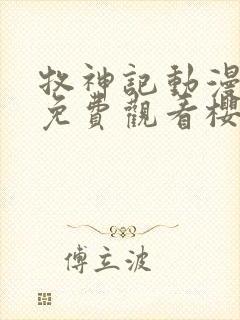 牧神記動漫
免費觀看櫻
傅立波